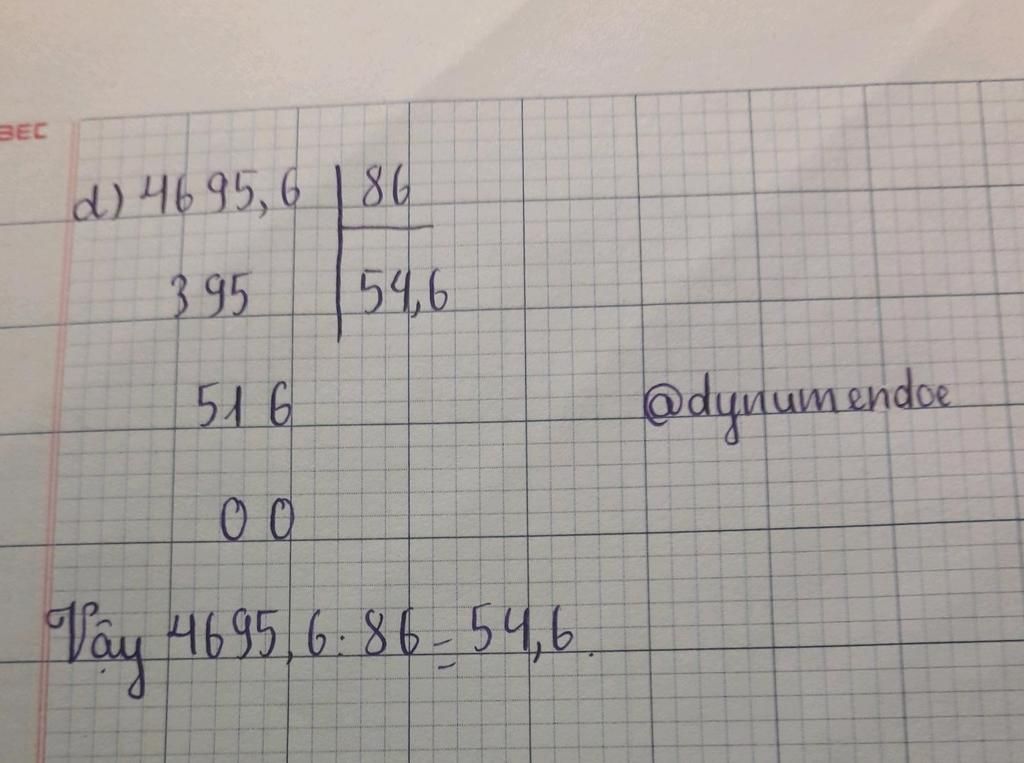 BEC
d) 4695,6 | 86
395 | 54,6
516
@dynumendoe
00
Vậy 4695,6 : 86 = 54,6.